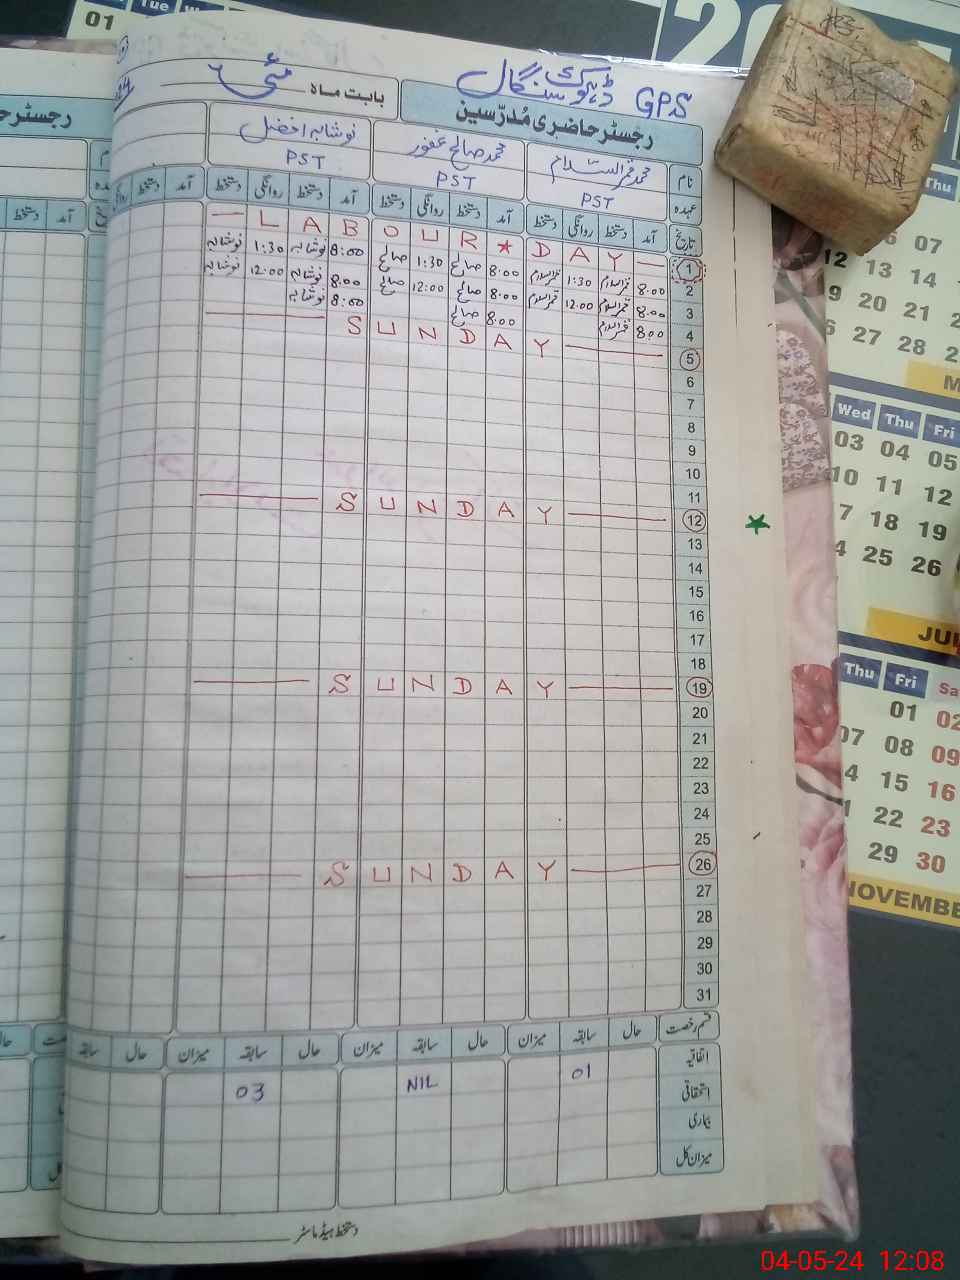 GPS ڈہوک سنگال
بابت ماہ مئی
رجسٹر حاضری مُدرّسین
نام محمد قمر السّلام محمد صالح غفور نوشابہ افضل
عہدہ PST PST PST
تاریخ آمد دستخط روانگی دستخط آمد دستخط روانگی دستخط آمد دستخط روانگی دستخط آمد دستخط
1 — L A B O U R ★ D A Y —
2 8.00 قمر السلام 1:30 قمر السلام 8:00 صالح 1:30 صالح 8:00 نوشابہ 1:30 نوشابہ
3 8.00 قمر السلام 12:00 قمر السلام 8:00 صالح 12:00 صالح 8:00 نوشابہ 12:00 نوشابہ
4 8.00 قمر السلام 8.00 صالح 8:00 نوشابہ
5 S U N D A Y
6
7
8
9
10
11
12 S U N D A Y
13
14
15
16
17
18
19 S U N D A Y
20
21
22
23
24
25
26 S U N D A Y
27
28
29
30
31
قسم رخصت حال سابقہ میزان حال سابقہ میزان حال سابقہ میزان حال سابقہ
اتفاقیہ 01 NIL 03
استحقاقی
بیماری
میزان کل
دستخط ہیڈ ماسٹر
رجسٹر حا
آمد دستخط
01
Tue
20
Thu
06 07
12 13 14
9 20 21
6 27 28
Wed Thu Fri
03 04 05
10 11 12
7 18 19
4 25 26
JUL
Thu Fri Sa
01 02
07 08 09
4 15 16
1 22 23
29 30
NOVEMBE
04-05-24 12:08